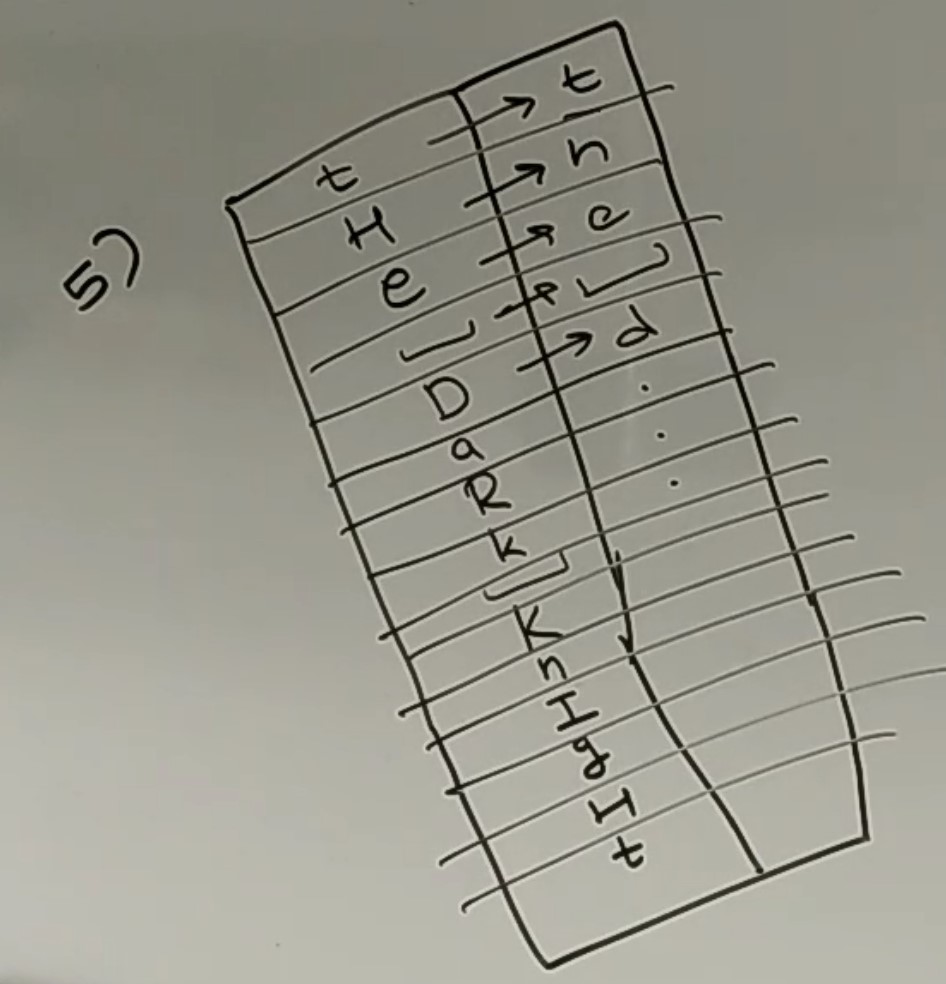 5)
t → t
H → h
e → e
⎵ → ⎵
D → d
a .
R .
k .
⎵
K
n
I
g
H
t